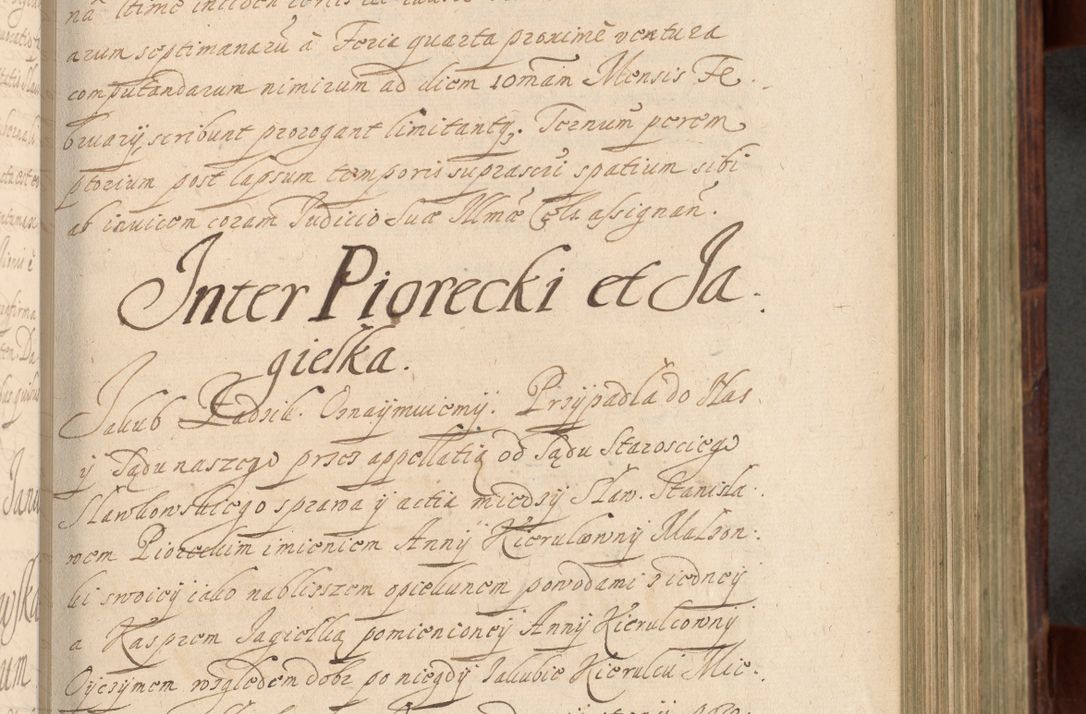 arum septimanarũ à Feria quarta proximè ventura
computandarum nimirum ad diem 10mam Mensis Fe.
bruarij scribunt prorogant limitantq̃. Ternum perem
ptorium post lapsum temporis suprascri spatium sibi
ab invicem coram Judicio Suæ Illmæ Cels assignañ.
Inter Piorecki et Ja.
giełka.
Jakub Zadzik. Oznaÿmuiemÿ. Przÿpadła do Nas.
ÿ Sądu naszego przez appellatią od Sądu Starosciego
Sławkowskiego sprawa ÿ actia miedzÿ Sław. Stanisła.
wem Pioreckim imieniem Annÿ Kierulcownÿ Małzon.
ki swoieÿ iako nabliszszem opiekunem powodami z iedneÿ
a Kasprem Jagiełką pomienioneÿ Annÿ Kierulcownÿ
Oÿczÿmem względem dobr po niegdÿ Jakubie Kierulcu Mie.